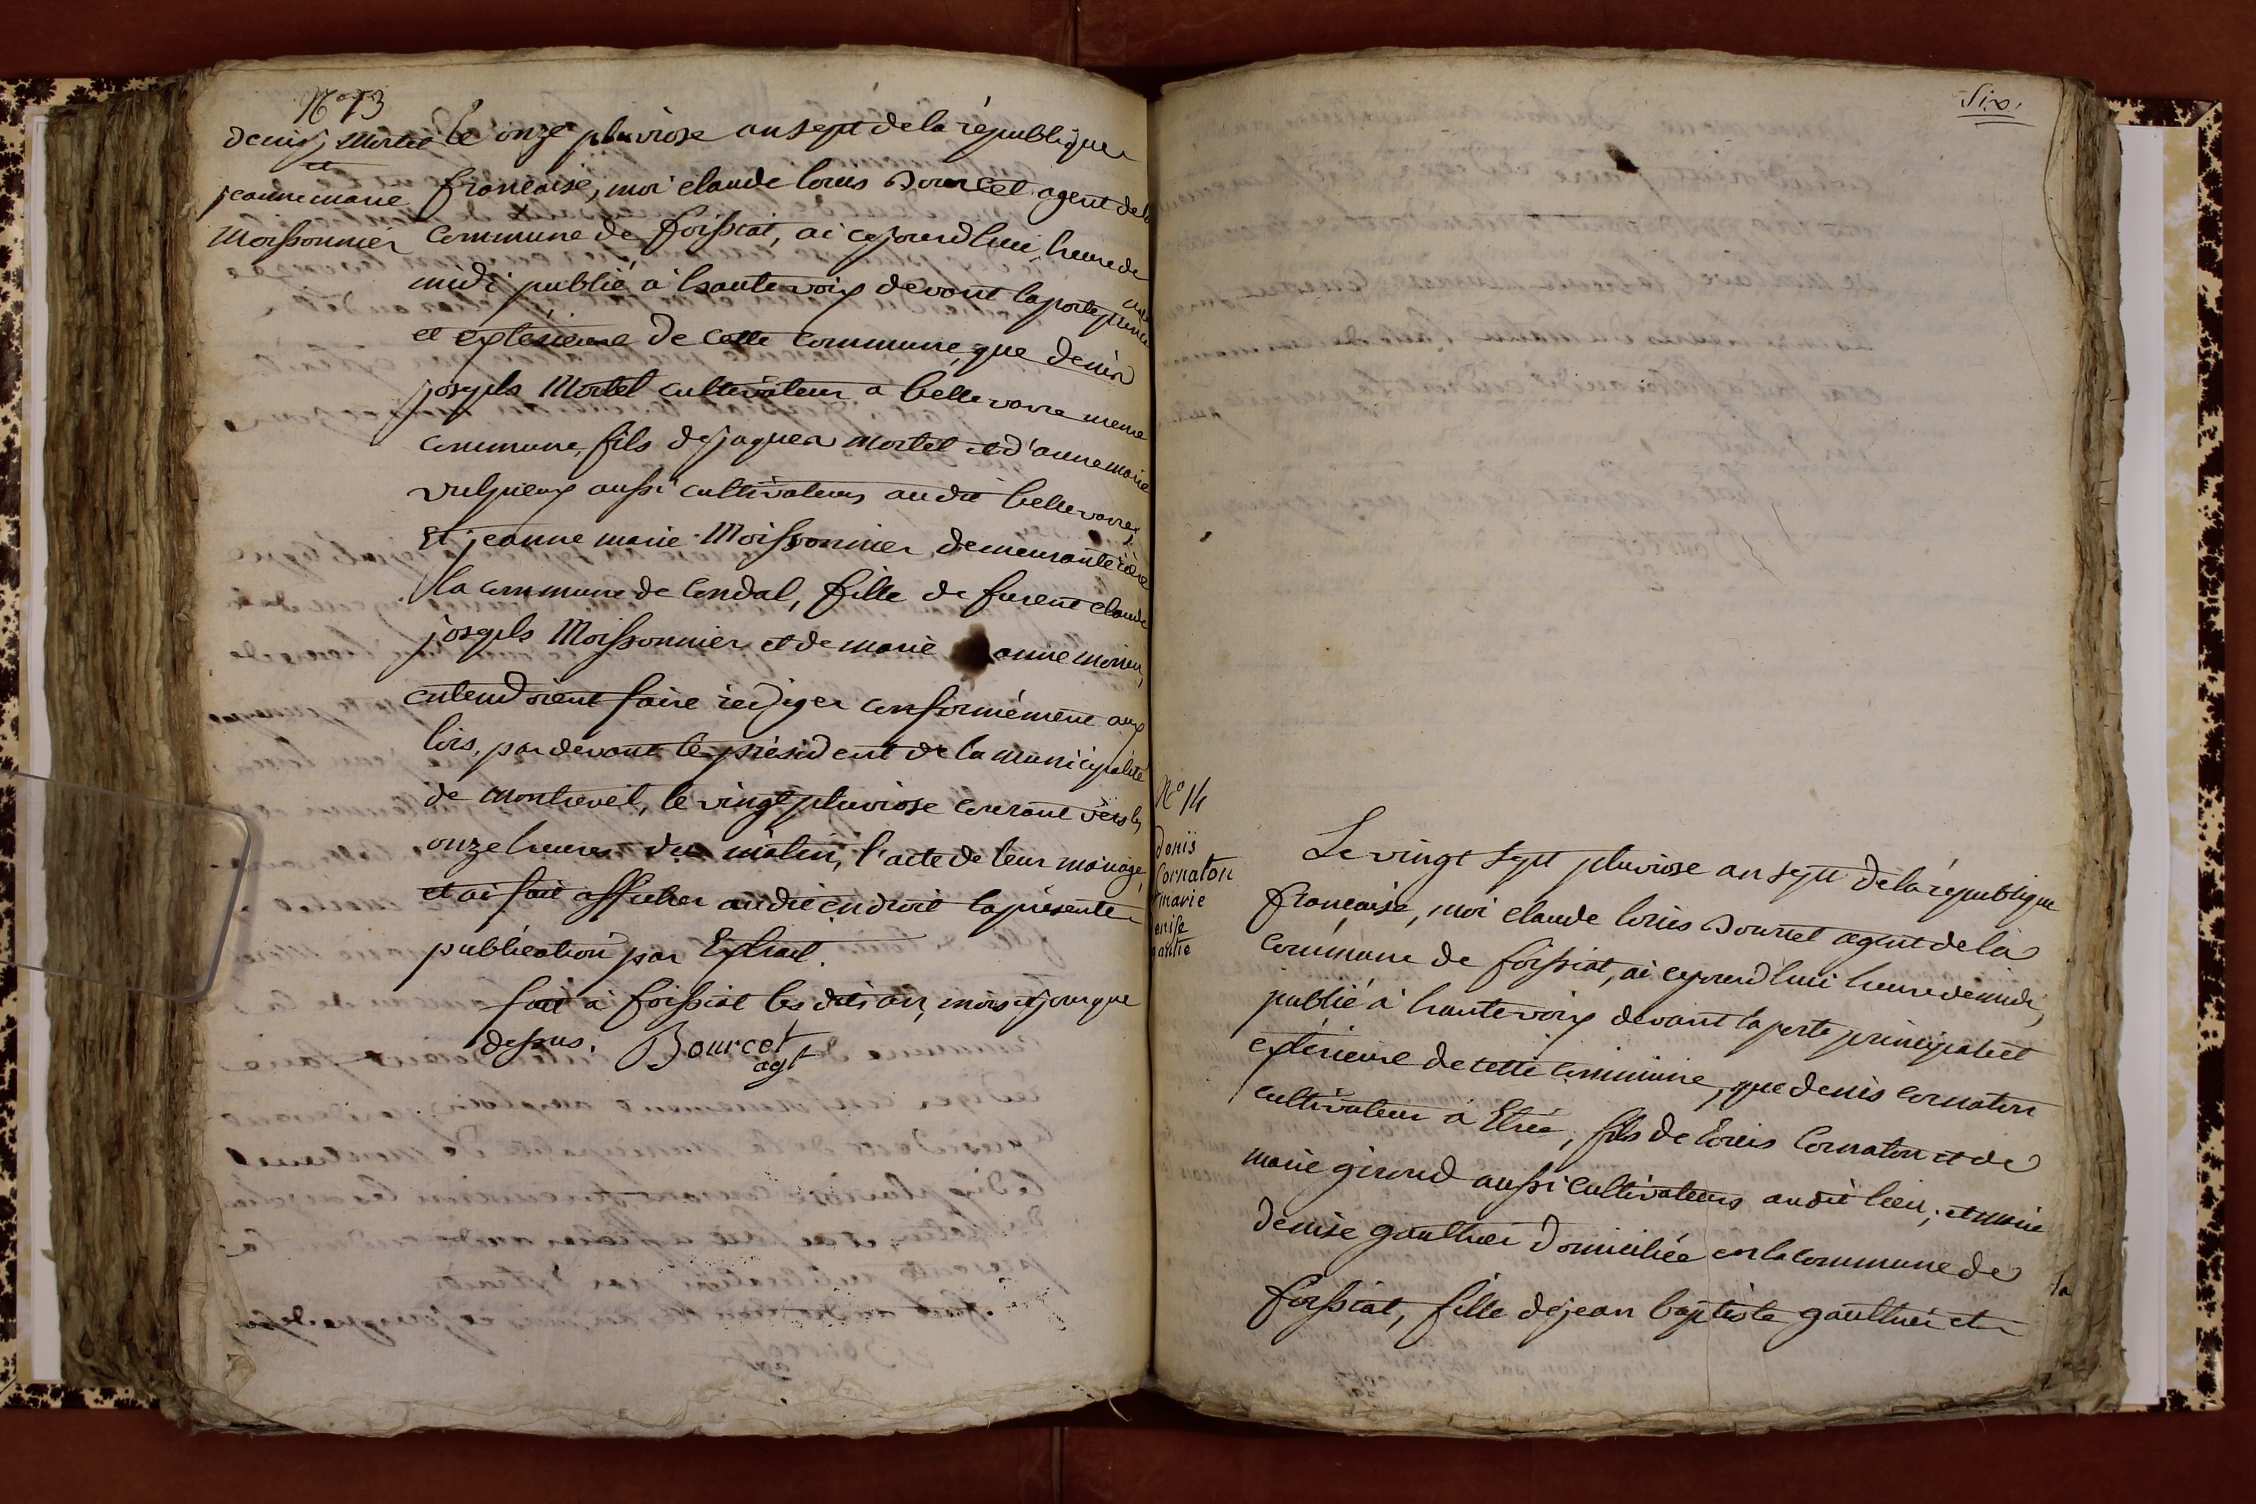 N° 13
denis j. Mortel
et
jeanne marie
Moissonnier
le onze pluviose an sept de la république
francaise, moi claude louis Bourcet agent de la
commune de foissiat, ai cejourd'hui, heure de
midi publié à haute voix devant la porte princi
et exterieure de cette commune, que denis
joseph Mortel cultivateur à bellevavre meme
commune, fils de jaques Mortel et d'anne marie
vulpieux aussi cultivateurs audit bellevavre,
Et jeanne marie Moissonnier, demeurante rière
la commune de Condal, fille de furent claude
joseph Moissonnier et de marie anne
entendoient faire rediger conformément aux
lois, par devant le président de la municipalité
de montrevel, le vingt pluviose courant vers les
onze heures du matin, l'acte de leur mariage,
et ai fait afficher audit endroit la présente
publication par Extrait.
fait à foissiat les dits an, mois et jour que
dessus. Bourcet
agt
six.
N° 14
denis
Cornaton
marie
denise
gautié
Le vingt sept pluviose an sept de la république
francaise, moi claude louis Bourcet agent de la
commune de foissiat, ai cejourd'hui heure de midi,
publié à haute voix devant la porte principale et
extérieure de cette commune, que denis cornaton
cultivateur à Etrée, fils de louis Cornaton et de
marie giroud aussi cultivateurs audit lieu, et marie
denise gaulthier domiciliée en la commune de
foissiat, fille de jean baptiste gaulthier et